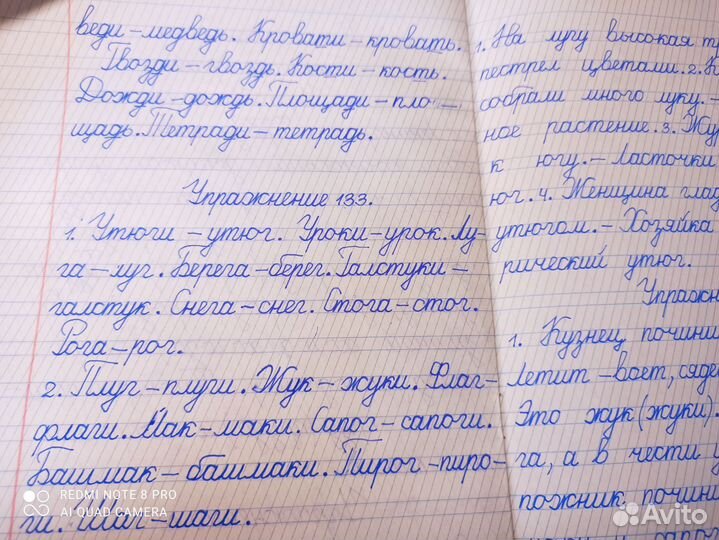 веди – медведь. Кровати – кровать.
Гвозди – гвоздь. Кости – кость.
Дожди – дождь. Площади – пло –
щадь. Тетради – тетрадь.
Упражнение 133.
1. Утюги – утюг. Уроки – урок. Лу-
га – луг. Берега – берег. Галстуки –
галстук. Снега – снег. Стога – стог.
Рога – рог.
2. Плуг – плуги. Жук – жуки. Флаг-
флаги. Мак – маки. Сапог – сапоги.
Башмак – башмаки. Пирог – пиро-
ги. Шаг – шаги.
1. На лугу высокая
пестрел цветами. 2.
собрали много луку. –
ное растение. 3.
к югу. – Ласточки
юг. 4. Женщина
утюгом. – Хозяйка
рический утюг.
1. Кузнец
Летит – воет,
Это жук (жуки).
га, а в чести у
пожник
REDMI NOTE 8 PRO
AI QUAD CAMERA
Avito